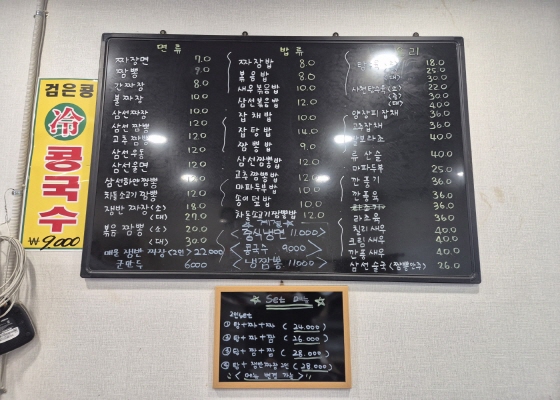 검은콩
冷
콩국수
₩9,000
면류
짜장면 7.0
짬뽕 9.0
간짜장 8.0
불짜장 10.0
삼선짜장 10.0
삼선짬뽕 12.0
고추짬뽕 12.0
삼선우동 12.0
삼선울면 12.0
삼선하얀짬뽕 12.0
차돌소고기짬뽕 12.0
쟁반짜장 (소) 18.0
(대) 27.0
볶음짬뽕 (소) 20.0
(대) 30.0
매운쟁반짜장 <2인> 22,000
군만두 6000
밥류
짜장밥 8.0
볶음밥 8.0
새우볶음밥 10.0
삼선볶음밥 12.0
잡채밥 10.0
잡탕밥 14.0
짬뽕밥 9.0
삼선짬뽕밥 12.0
고추짬뽕밥 12.0
마파두부밥 10.0
송이덮밥 10.0
차돌소고기짬뽕밥 12.0
<중식냉면 11000>
<콩국수 9,000>
<냉짬뽕 11000>
리
18.0
25.0
(대) 30.0
사천탕수육 (소) 22.0
(중) 30.0
(대) 40.0
양장피잡채 36.0
고추잡채 36.0
40.0
유산슬 40.0
마파두부 25.0
깐풍기 36.0
깐풍육 36.0
36.0
라조육 36.0
칠리새우 40.0
크림새우 40.0
깐풍새우 40.0
삼선술국 (짬뽕안주) 26.0
☆ Set 메뉴 ☆
2인set
① 탕+짜+짜 (24.000)
② 탕+짜+짬 (26.000)
③ 탕+짬+짬 (28.000)
④ 탕+쟁반짜장2인 (28.000)